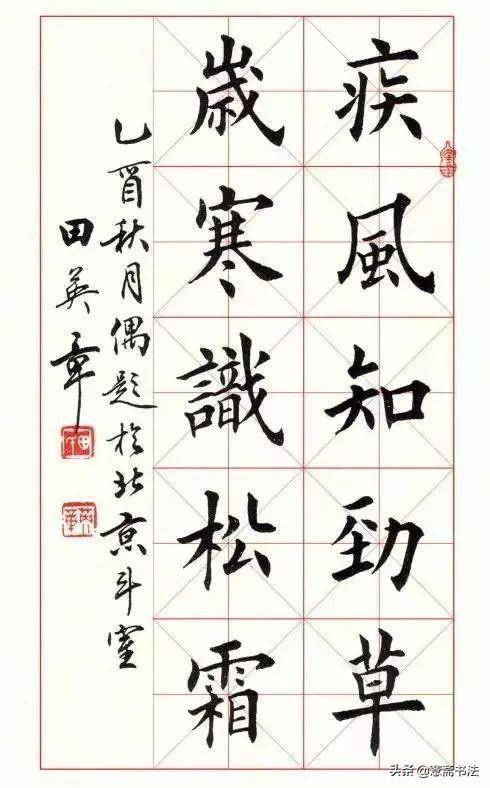 疾風知勁草
歲寒識松霜
乙酉秋月偶題於北京斗室
田英章
头条@馨斋书法